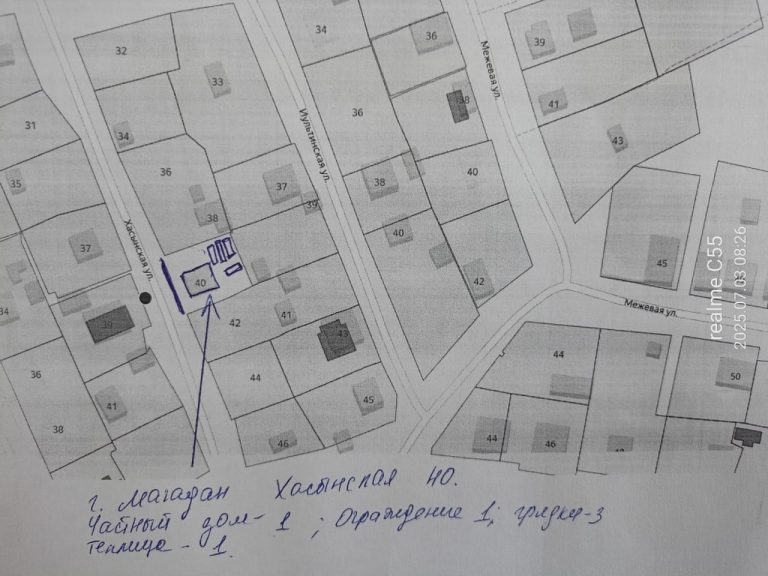 32
34
36
39
33
31
34
36
38
41
43
36
40
35
37
39
38
38
40
37
45
40
42
34
39
42
41
43
44
50
36
44
41
45
38
46
44
46
Хасынская ул.
Иультинская ул.
Межевая ул.
Межевая ул.
г. Магадан Хасынская 40.
Частный дом - 1 ; Ограждение 1; грядки-3
теплица - 1.
realme C55
2025.07.03 08:26